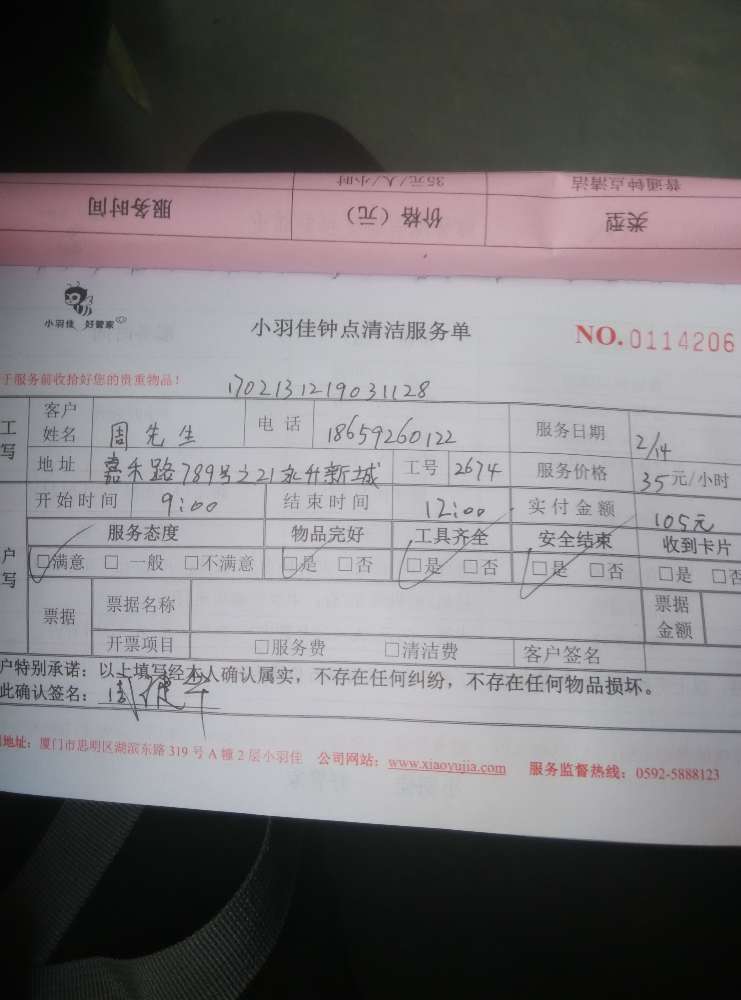 普通钟点清洁 35元/人/小时
类型 价格（元） 服务时间
小羽佳 好管家
小羽佳钟点清洁服务单
NO.0114206
于服务前收拾好您的贵重物品！
1702131219031128
工 客户姓名 周先生 电话 18659260122 服务日期 2/14
写 地址 嘉禾路789号之21永升新城 工号 2674 服务价格 35元/小时
开始时间 9:00 结束时间 12:00 实付金额 105元
服务态度 物品完好 工具齐全 安全结束 收到卡片
户 □满意 □一般 □不满意 □是 □否 □是 □否 □是 □否 □是 □否
写 票据 票据名称 票据金额
开票项目 □服务费 □清洁费 客户签名
户特别承诺：以上填写经本人确认属实，不存在任何纠纷，不存在任何物品损坏。
此确认签名：
地址：厦门市思明区湖滨东路319号A幢2层小羽佳 公司网站：www.xiaoyujia.com 服务监督热线：0592-5888123